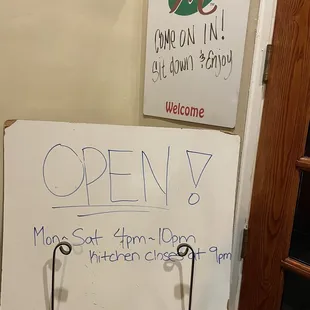 COME ON IN!
Sit down & Enjoy
Welcome
OPEN!
Mon~Sat 4pm~10pm
Kitchen closes at 9pm